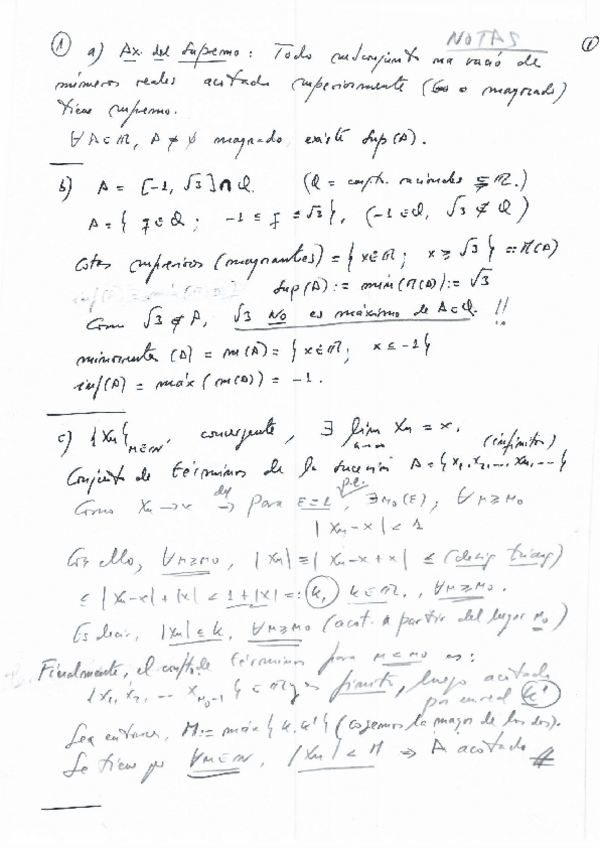 NOTAS
① a) Ax. del Supremo: Todo subconjunto no vació de ①
números reales acotado superiormente (o magorado)
tiene supremo.
∀ A⊂ℝ, A ≠ ∅ magorado, existe Sup(A).
b) A = [-1, √3] ∩ Q. (Q = conjto. racionales ⊊ ℝ.)
A = { q ∈ Q ; -1 ≤ q ≤ √3 }, (-1 ∈ Q, √3 ∉ Q)
Cotas superiores (magorantes) = { x∈ℝ ; x ≥ √3 } =: M(A)
Sup(A) := mín(M(A)) := √3
Como √3 ∉ A, √3 NO es máximo de A⊂Q. !!
minorantes (A) = m(A) = { x∈ℝ ; x ≤ -1 }
inf(A) = máx(m(A)) = -1.
c) {Xn}n∈N, convergente, ∃ lim Xn = x. (infinitos)
Conjunto de términos de la sucesión A = {x1, x2, ... xn, ...}
Como Xn → x def → para ε=1, p.e. ∃ n0(ε); ∀ n≥n0
| Xn - x | < 1
Con ello, ∀ n≥n0, |Xn| = | Xn - x + x | ≤ (desig. triang)
≤ | Xn - x | + |x| < 1 + |x| =: k, k∈ℝ, ∀ n≥n0.
Es decir, |Xn| ≤ k, ∀ n≥n0 (acot. a partir del lugar n0)
Finalmente, el conjto. de términos para n<n0 es:
{x1, x2, ... xn0-1} ⊂ ℝ y es finito, luego acotado
por un real k'
Sea entonces, M := máx{k, k'} (cogemos la mayor de los dos).
Se tiene que ∀n∈N, |Xn| < M ⇒ A acotado #